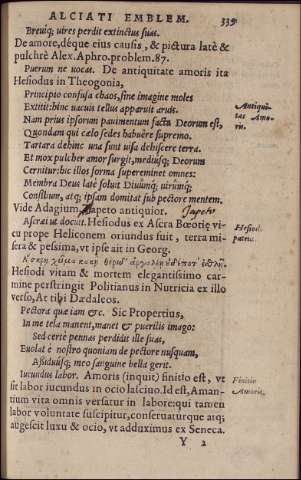 ALCIATI EMBLEM. 339
Breuiq; uires perdit extinctus suas.
De amore, déque eius causis, & pictura latè &
pulchrè Alex. Aphro. problem. 87.
Puerum ne uocas. De antiquitate amoris ita
Hesiodus in Theogonia,
Principio confusa chaos, sine imagine moles
Extitit: hinc uacuis tellus apparuit aruis.
Antiqui-
tas Amo-
ris.
Nam prius ipsorum pauimentum facta Deorum est,
Quondam qui cælo sedes habuêre supremo.
Tartara dehinc una sunt uisa dehiscere terra.
Et mox pulcher amor surgit, mediusq; Deorum
Cernitur: hic illos forma supereminet omnes:
Membra Deus latè soluit Diuûmq; uirûmq;
Consilium, atq; ipsam domitat sub pectore mentem.
Vide Adagium, Iapeto antiquior. Iapeto
Ascræi ut docuit. Hesiodus ex Ascra Bœotię vi-
cu prope Heliconem oriundus fuit, terra mi-
Hesiodi
patria.
sera & pessima, vt ipse ait in Georg.
Hesiodi vitam & mortem elegantissimo car-
mine perstringit Politianus in Nutricia ex illo
verso, At tibi Dædaleos.
Pectora quæ iam &c. Sic Propertius,
In me tela manent, manet & puerilis imago:
Sed certè pennas perdidit ille suas,
Euolat è nostro quoniam de pectore nusquam,
Assiduusq; meo sanguine bella gerit.
Iucundus labor. Amoris (inquit) finitio est, vt
Finitio
Amoris.
sit labor iucundus in ocio lasciuo. Id est, Aman-
tium vita omnis versatur in labore: qui tamen
labor voluntate suscipitur, conseruaturque atq;
augescit luxu & ocio, vt adduximus ex Seneca.
Y 2